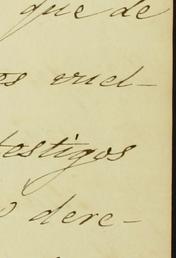 que de
os vuel-
testigos
o dere-